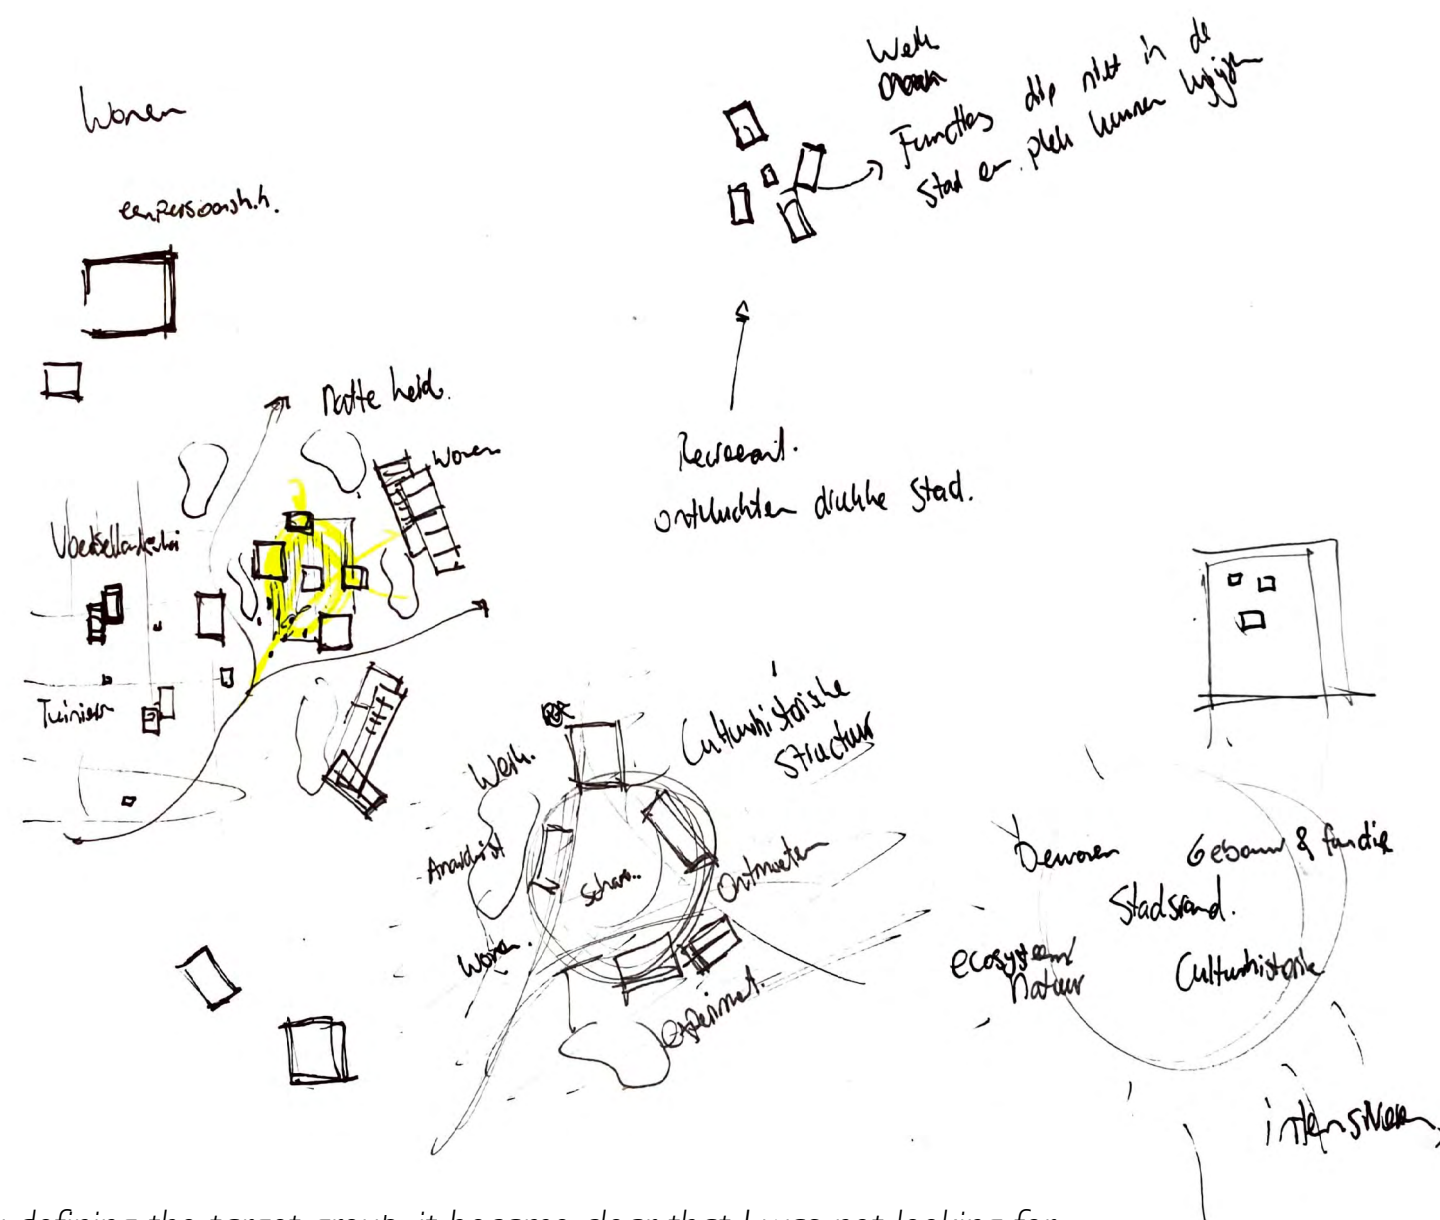 Wonen
eenpersoonsh.h.
Werk
Functies die niet in de
stad een plek kunnen krijgen
Natte heide.
Wonen
Recreant.
ontvluchten drukke stad.
Tuinieren
Cultuurhistorische
structuur
Werk.
Anarchist
Ontmoeten
Wonen.
experiment.
bewoner
Gebouw & functie
Stadsrand.
ecosysteem/
Natuur
Cultuurhistorie
intensiveren
defining the target group, it became clear that I was not looking for